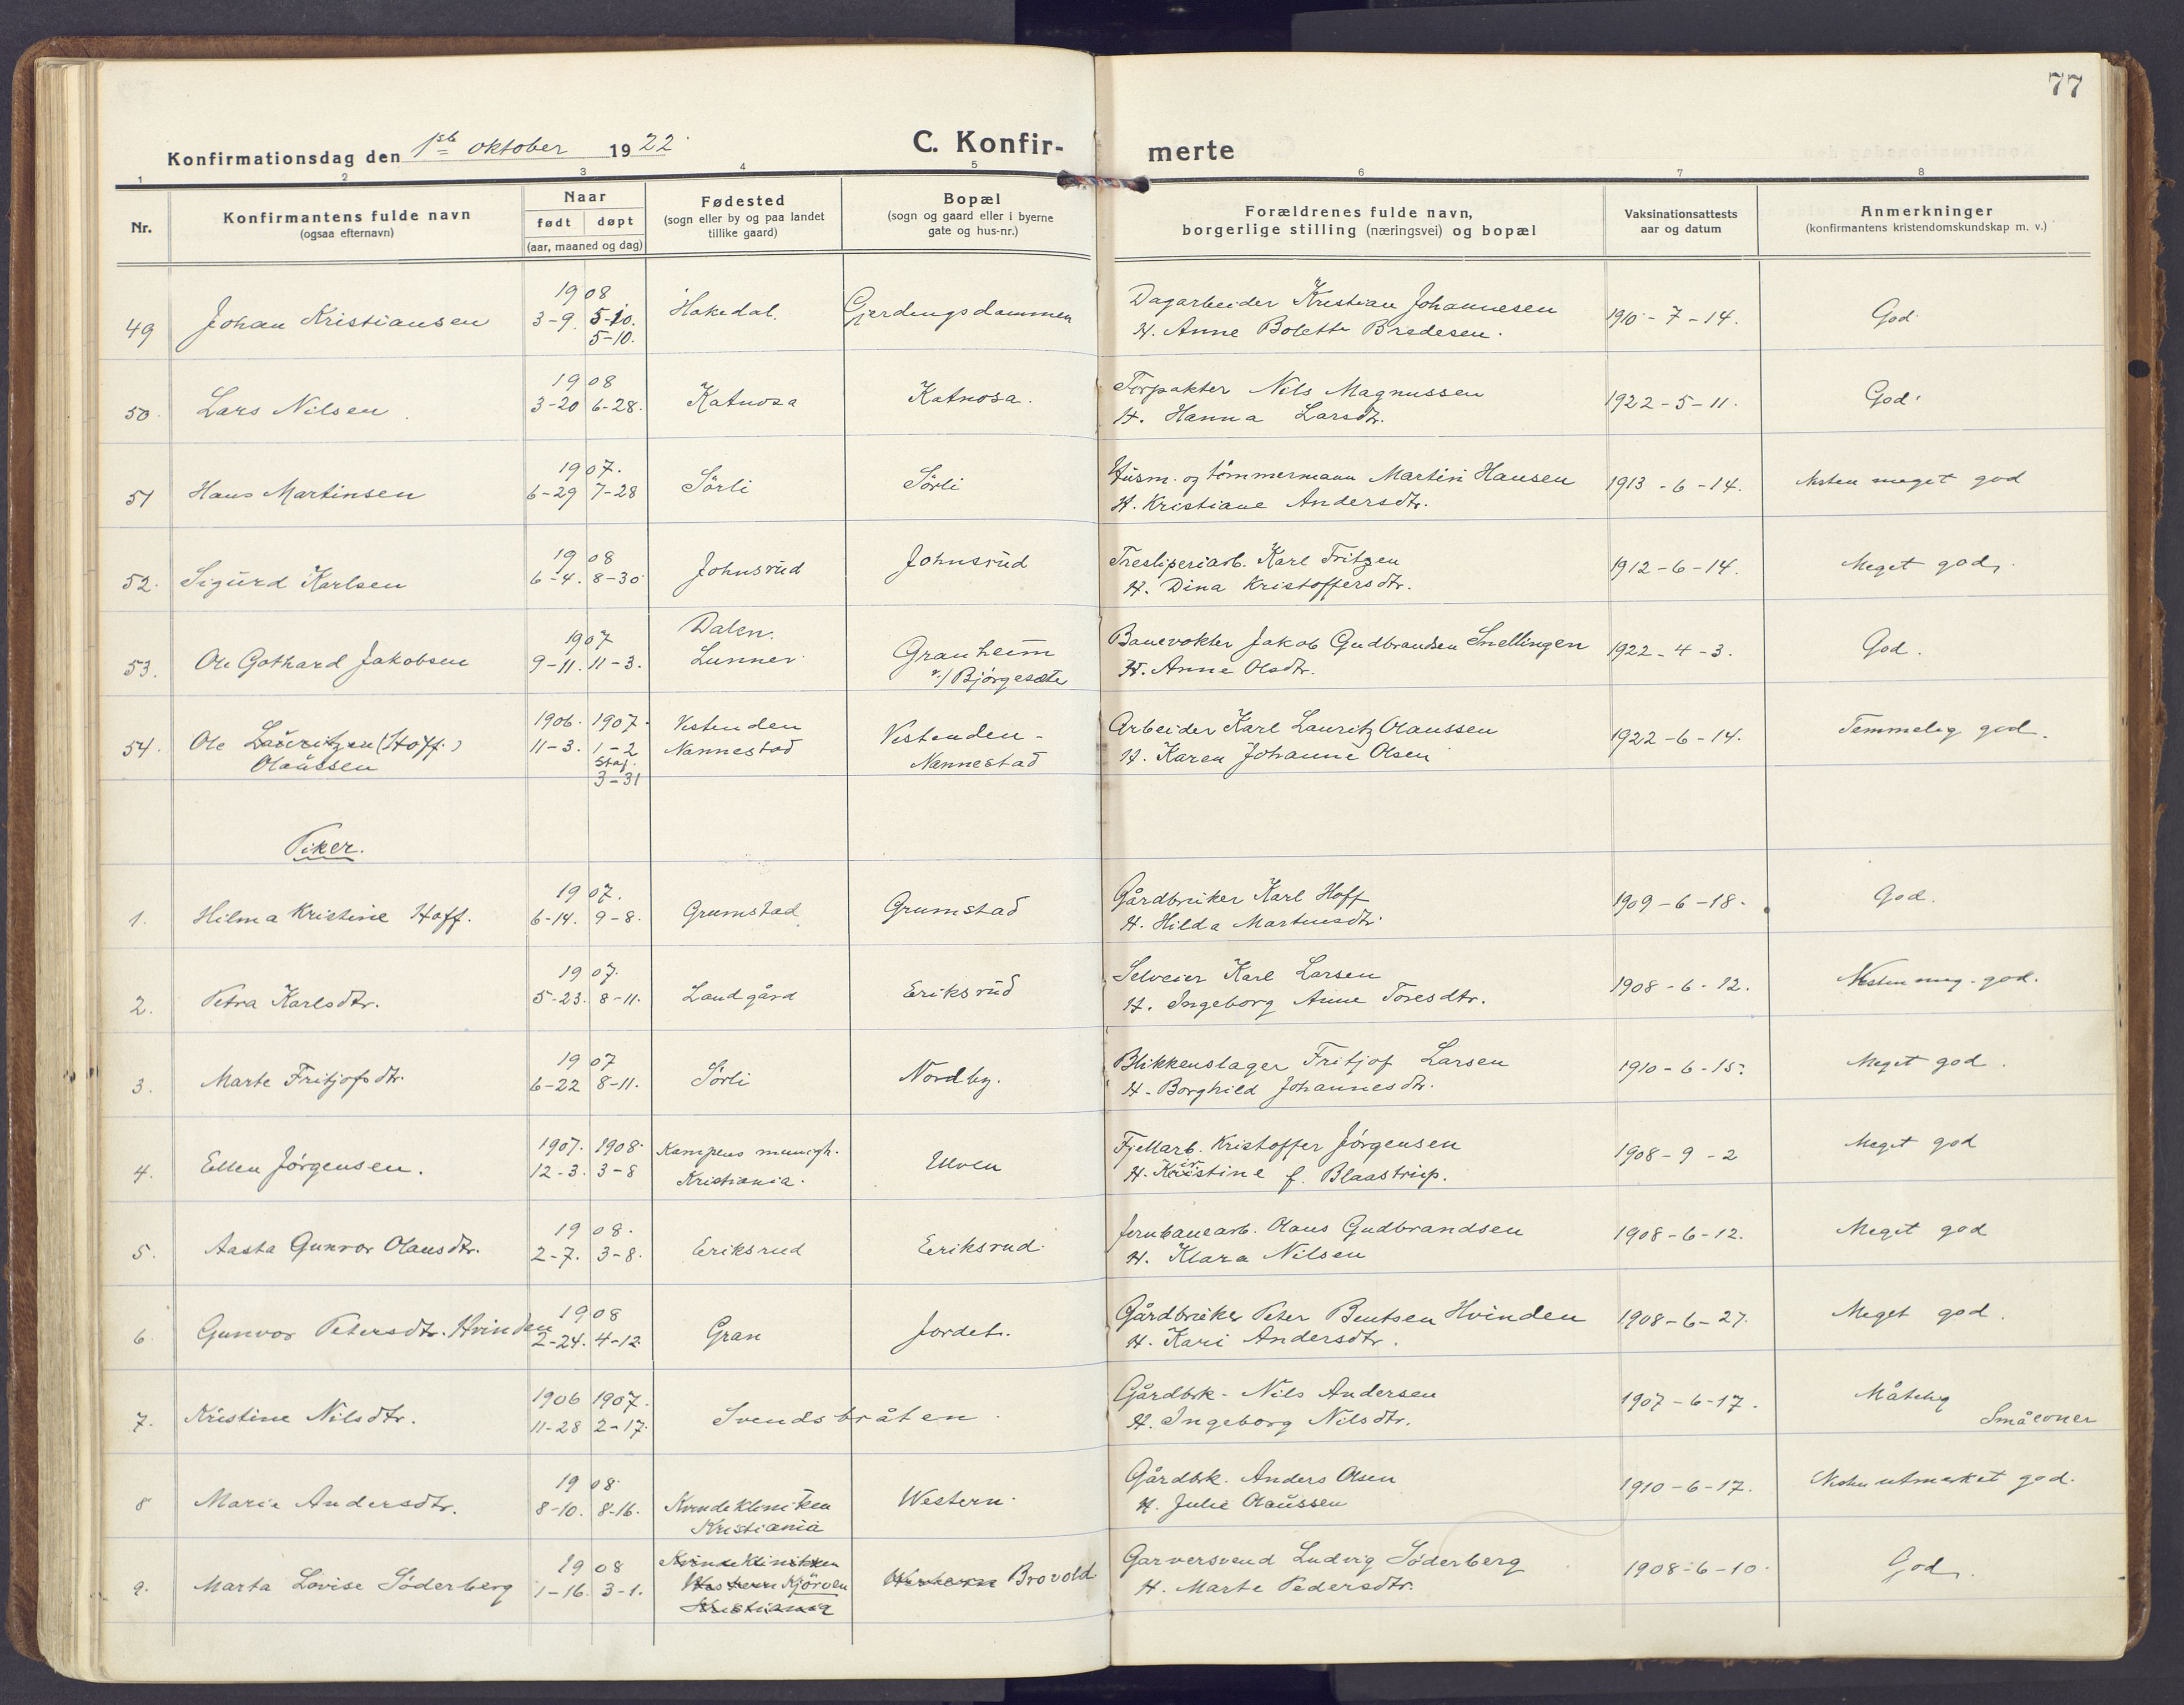 77
Konfirmationsdag den 1ste oktober 1922.
C. Konfir- merte
1 2 3 4 5 6 7 8
Nr.
Konfirmantens fulde navn
(ogsaa efternavn)
Naar
født døpt
(aar, maaned og dag)
Fødested
(sogn eller by og paa landet
tillike gaard)
Bopæl
(sogn og gaard eller i byerne
gate og hus-nr.)
Forældrenes fulde navn,
borgerlige stilling (næringsvei) og bopæl
Vaksinationsattests
aar og datum
Anmerkninger
(konfirmantens kristendomskundskap m. v.)
49 Johan Kristiansen
1908
3-9. 5-10.
5-10.
Hakedal.
Gjerdingsdammen
Dagarbeider Kristian Johannesen
H. Anne Bolette Bredesen.
1910-7-14.
God
50. Lars Nilsen.
1908
3-20 6-28.
Katnosa
Katnosa.
Forpakter Nils Magnussen
H. Hanna Larsdtr.
1922-5-11.
God.
51 Hans Martinsen
1907.
6-29 7-28
Sörli
Sörli
Husm. og tömmermann Martin Hansen
H. Kristiane Andersdtr.
1913-6-14.
Nesten meget god
52. Sigurd Karlsen
1908
6-4. 8-30
Johnsrud
Johnsrud
Tresliperiarb. Karl Fritzen
H. Dina Kristoffersdtr.
1912-6-14.
Meget god.
53. Ole Gothard Jakobsen
1907
9-11. 11-3.
Dalen.
Lunner
Granheim
v/ Bjørgesæte
Banevokter Jakob Gudbrandsen Snellingen
H. Anne Olsdtr.
1922-4-3.
God.
54. Ole Lauritzen (Hoff.)
Olaussen
1906. 1907.
11-3. 1-2
Staf.
3-31
Vestenden
Nannestad
Vestenden-
Nannestad
Arbeider Karl Lauritz Olaussen
H. Karen Johanne Olsen
1922-6-14.
Temmelig god.
Piker.
1. Hilma Kristine Hoff.
1907.
6-14. 9-8.
Grumstad
Grumstad
Gårdbruker Karl Hoff
H. Hilda Martinsdtr.
1909-6-18.
God.
2. Petra Karlsdtr.
1907.
5-23. 8-11.
Landgård
Eriksrud
Selveier Karl Larsen
H. Ingeborg Anne Toresdtr.
1908-6-12.
Nesten meg. god.
3. Marte Fritjofsdtr.
1907
6-22 8-11.
Sörli
Nordby.
Blikkenslager Fritjof Larsen
H. Borghild Johannesdtr.
1910-6-15.
Meget god.
4. Ellen Jörgensen.
1907. 1908.
12-3. 3-8
Kampens menigh.
Kristiania.
Ulven
Fjellarb. Kristoffer Jörgensen
H. Kristine f. Blaastrup.
1908-9-2
Meget god
5. Aasta Gunvor Olausdtr.
1908.
2-7. 3-8.
Eriksrud
Eriksrud.
Jernbanearb. Olaus Gudbrandsen
H. Klara Nilsen
1908-6-12.
Meget god
6. Gunvor Petersdtr. Hvinden
1908
2-24. 4-12
Gran
Jordet.
Gårdbruker Peter Bentsen Hvinden
H. Kari Andersdtr.
1908-6-27.
Meget god.
7. Kristine Nilsdtr.
1906 1907.
11-28 2-17.
Svendsbråten.
Gårdbrk. Nils Andersen
H. Ingeborg Nilsdtr.
1907-6-17.
Måtelig
Småevner
8 Marie Andersdtr.
1908.
8-10. 8-16.
Kvindekliniken
Kristiania
Western.
Gårdbrk. Anders Olsen
H. Julie Olaussen
1910-6-17.
Nesten utmerket god.
9. Marta Lovise Söderberg
1908
1-16. 3-1.
Kvindekliniken
Western Kjörven
Kristiania
Western Brovold
Garversvend Ludvig Söderberg
H. Marte Pedersdtr.
1908-6-10.
God.